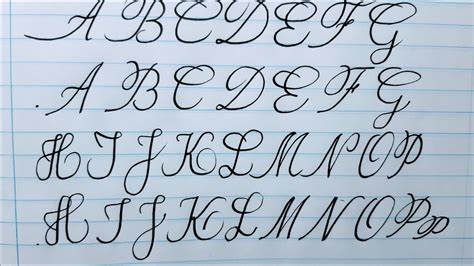 A B C D E F G
A B C D E F G
H I J K L M N O P
H I J K L M N O P